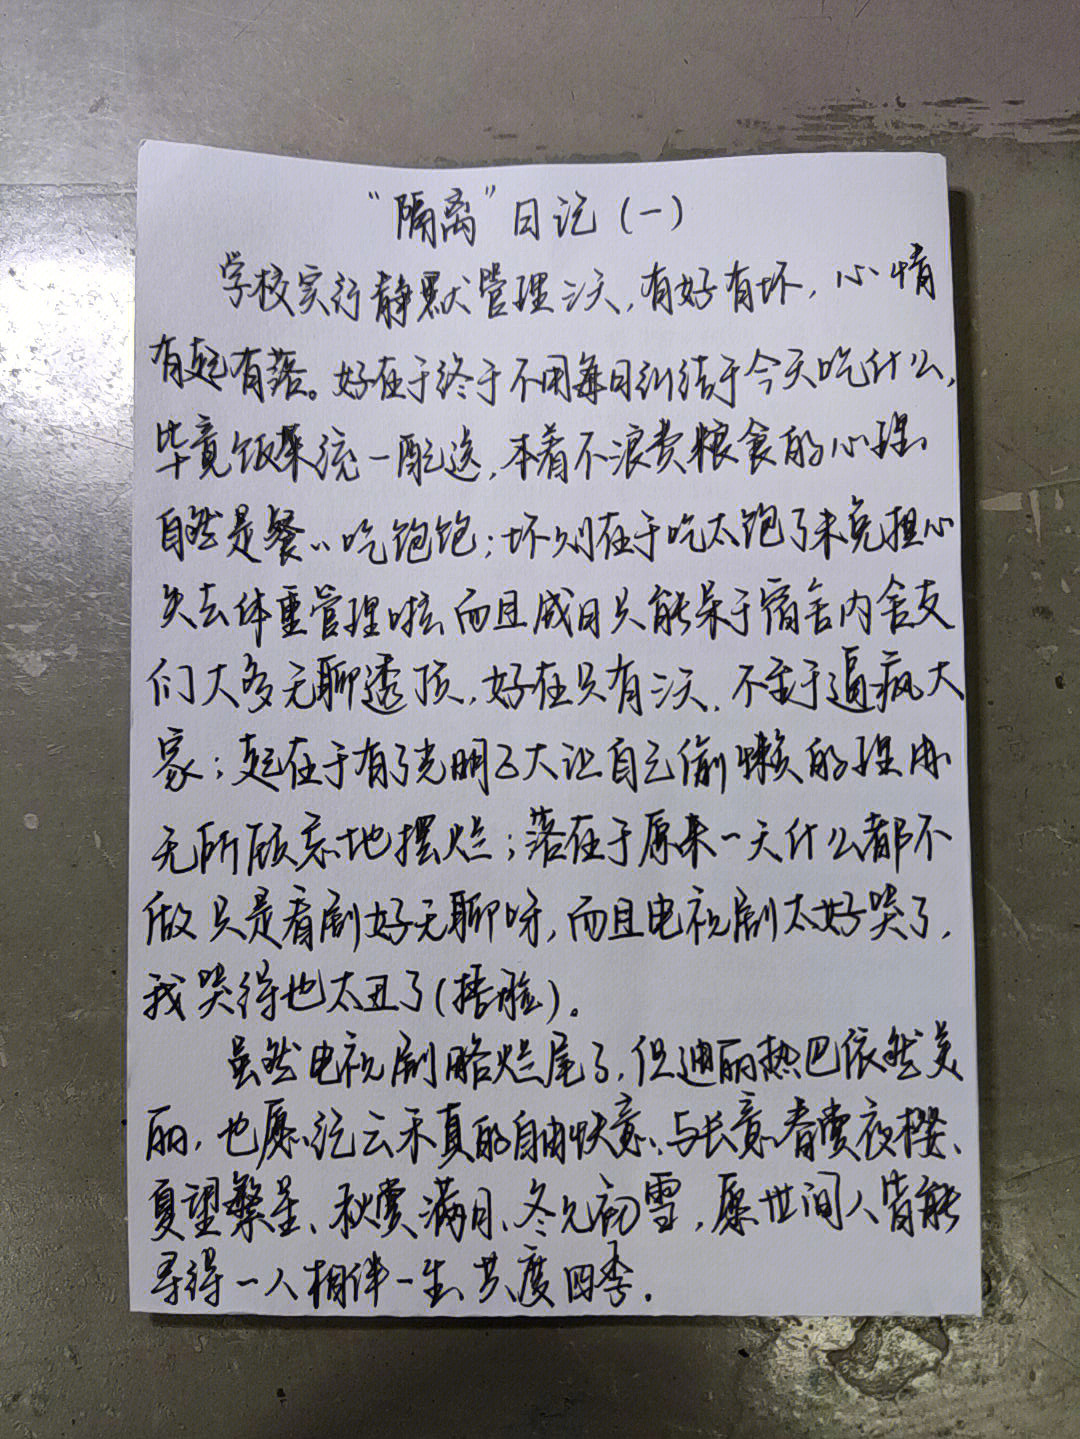 “隔离”日记（一）
学校实行静默管理三天，有好有坏，心情
有起有落。好在于终于不用每日纠结于今天吃什么，
毕竟饭菜统一配送，本着不浪费粮食的心理
自然是餐餐吃饱饱；坏则在于吃太饱了未免担心
失去体重管理啦，而且成日只能呆于宿舍内舍友
们大多无聊透顶，好在只有三天，不至于逼疯大
家；起在于有了光明正大让自己偷懒的理由
无所顾忌地摆烂；落在于原来一天什么都不
做只是看剧好无聊呀，而且电视剧太好哭了，
我哭得也太丑了（捂脸）。
虽然电视剧略烂尾了，但迪丽热巴依然美
丽，也愿纪云禾真的自由快意、与长意春赏夜樱、
夏望繁星、秋赏满月、冬见初雪，愿世间人皆能
寻得一人相伴一生、共度四季.